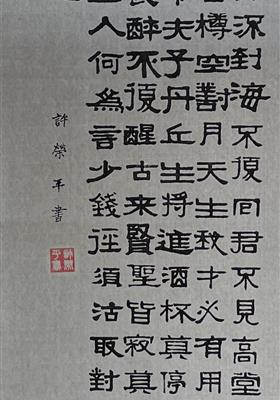 流到海不復回君不見高堂
樽空對月天生我才必有用
夫子丹丘生將進酒杯莫停
長醉不復醒古来賢聖皆寂寞
主人何為言少錢徑須沽取對
許榮平書